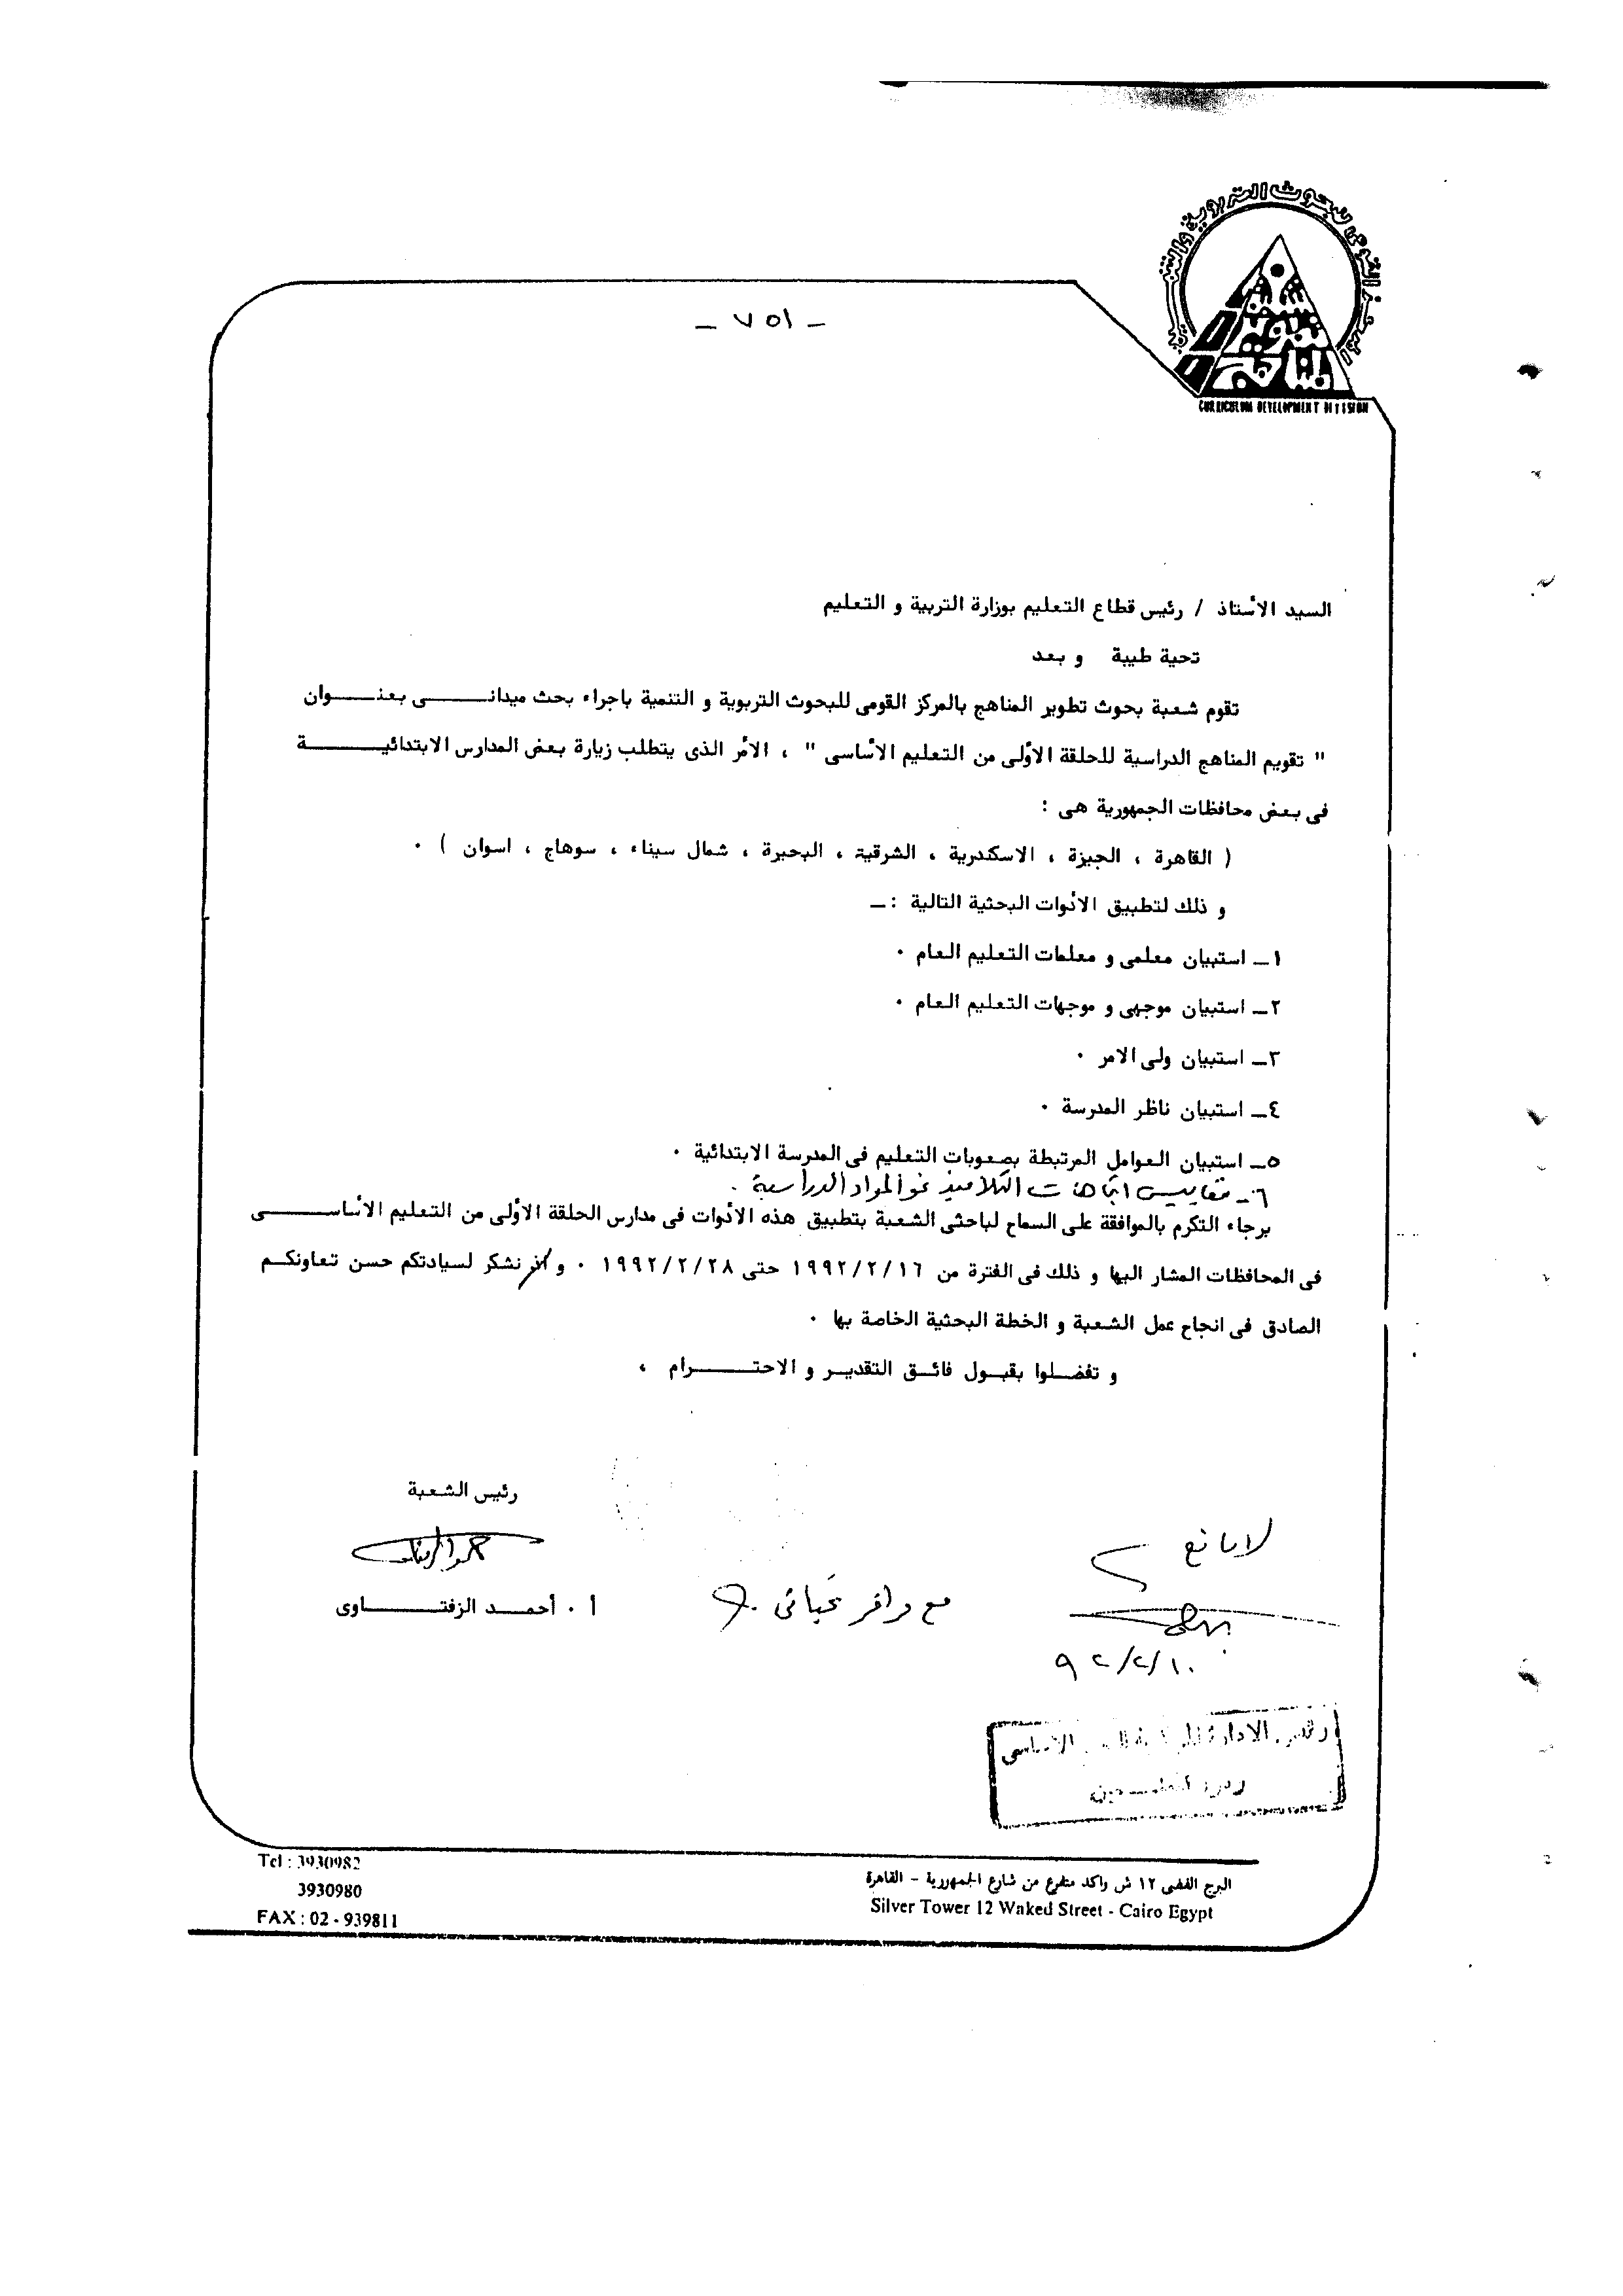 المركز القومى للبحوث التربوية والتنمية
تطوير
المناهج
CURRICULUM DEVELOPMENT DIVISION
السيد الأستاذ / رئيس قطاع التعليم بوزارة التربية و التعليم
تحية طيبة و بعد
تقوم شعبة بحوث تطوير المناهج بالمركز القومى للبحوث التربوية و التنمية باجراء بحث ميدانى بعنوان
" تقويم المناهج الدراسية للحلقة الأولى من التعليم الأساسى " ، الأمر الذى يتطلب زيارة بعض المدارس الابتدائية
فى بعض محافظات الجمهورية هى :
( القاهرة ، الجيزة ، الاسكندرية ، الشرقية ، البحيرة ، شمال سيناء ، سوهاج ، اسوان ) ٠
و ذلك لتطبيق الأدوات البحثية التالية :ـ
١ـ استبيان معلمى و معلمات التعليم العام ٠
٢ـ استبيان موجهى و موجهات التعليم العام ٠
٣ـ استبيان ولى الامر ٠
٤ـ استبيان ناظر المدرسة ٠
٥ـ استبيان العوامل المرتبطة بصعوبات التعليم فى المدرسة الابتدائية ٠
٦ـ مقاييس اتجاهات التلاميذ نحو المواد الدراسية .
برجاء التكرم بالموافقة على السماح لباحثى الشعبة بتطبيق هذه الأدوات فى مدارس الحلقة الأولى من التعليم الأساسى
فى المحافظات المشار اليها و ذلك فى الفترة من ١٩٩٢/٢/١٦ حتى ١٩٩٢/٢/٢٨ ٠ و نشكر لسيادتكم حسن تعاونكم
الصادق فى انجاح عمل الشعبة و الخطة البحثية الخاصة بها ٠
و تفضلوا بقبول فائق التقدير و الاحترام ،
رئيس الشعبة
لا مانع
مع وافر تحياتى
أ ٠ أحمد الزفتاوى
٩٢/٢/١٠
رئيس الادارة المركزية للتعليم الأساسى
Tel : 3930982
3930980
FAX : 02 - 939811
البرج الفضى ١٢ ش واكد متفرع من شارع الجمهورية - القاهرة
Silver Tower 12 Waked Street - Cairo Egypt